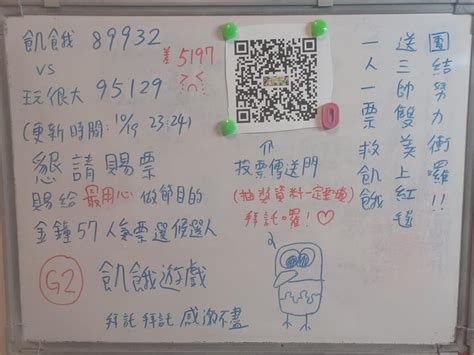 飢餓 89932
vs
差 5197
玩很大 95129
(更新時間:10/19 23:24)
懇請賜票
賜給 最用心 做節目的
金鐘57人氣票選候選人
G2 飢餓遊戲
拜託拜託感激不盡
投票傳送門
(抽獎資料一定要填)
拜託囉!♡
團結努力衝囉!!
送三帥雙美上紅毯
一人一票救飢餓